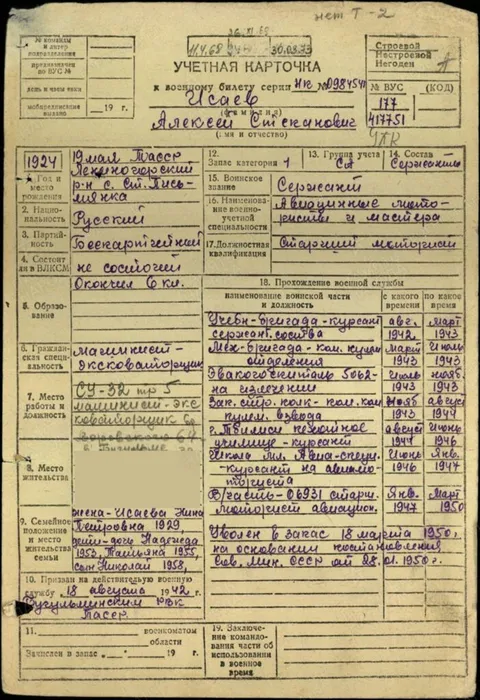 нет Т-2
26.XI.69
11.4.68
30.03.73
№ команды и литер подразделения
предназначен по ВУС №
день и часы явки
мобпредписание выдано 19 г.
Строевой
Нестроевой
Негоден
УЧЕТНАЯ КАРТОЧКА
к военному билету серии НК № 0984541
Исаев
(фамилия)
Алексей Степанович
(имя и отчество)
№ ВУС (КОД)
177
417751
1924
1. Год и место рождения
19 мая Тасср
Лениногорский
р-н с. Ст. Пись-
мянка
2. Национальность
Русский
3. Партийность
Беспартийный
4. Состоит ли в ВЛКСМ
не состоит
5. Образование
Окончил 6 кл.
6. Гражданская специальность
машинист-
экскаваторщик
7. Место работы и должность
СУ-32 тр 5
машинист-экс
каваторщик
8. Место жительства
9. Семейное положение и место жительства семьи
жена-Исаева Нина
Петровна 1929,
дети-дочь Надежда
1953, Татьяна 1955,
сын Николай 1958,
10. Призван на действительную военную
службу 18 августа 1942 г.
Бугульминским РВК
Тасср
11. военкоматом
области
Зачислен в запас 19 г.
12. Запас категория 1
13. Группа учета СА
14. Состав Сержанты
15. Воинское звание
Сержант
16. Наименование военно-учетной специальности
Авиационные мото-
ристы и мастера
17. Должностная квалификация
Старший моторист
18. Прохождение военной службы
наименование воинской части и должность
с какого времени
по какое время
Учебн-бригада-курсант
сержант. состава
авг. 1942
март 1943
Мех-бригада-ком. кулем
отделения
март 1943
июль 1943
Эвакогоспиталь 5062-
на излечении
июль 1943
нояб. 1943
Зап. стр. полк-ком. ком
кулем. взвода
нояб 1943
август 1944
г. Тбилиси пехотное
училище-курсант
август 1944
июнь 1946
Школа мл. Авиа-спец.
-курсант на авиамо-
ториста
июнь 1946
янв. 1947
В/часть-06931 старш.
моторист авиацион.
янв. 1947
март 1950
Уволен в запас 18 марта 1950г.
на основании постановления
Сов. Мин. СССР от 28.01.1950г.
19. Заключение командования части об использовании в военное время